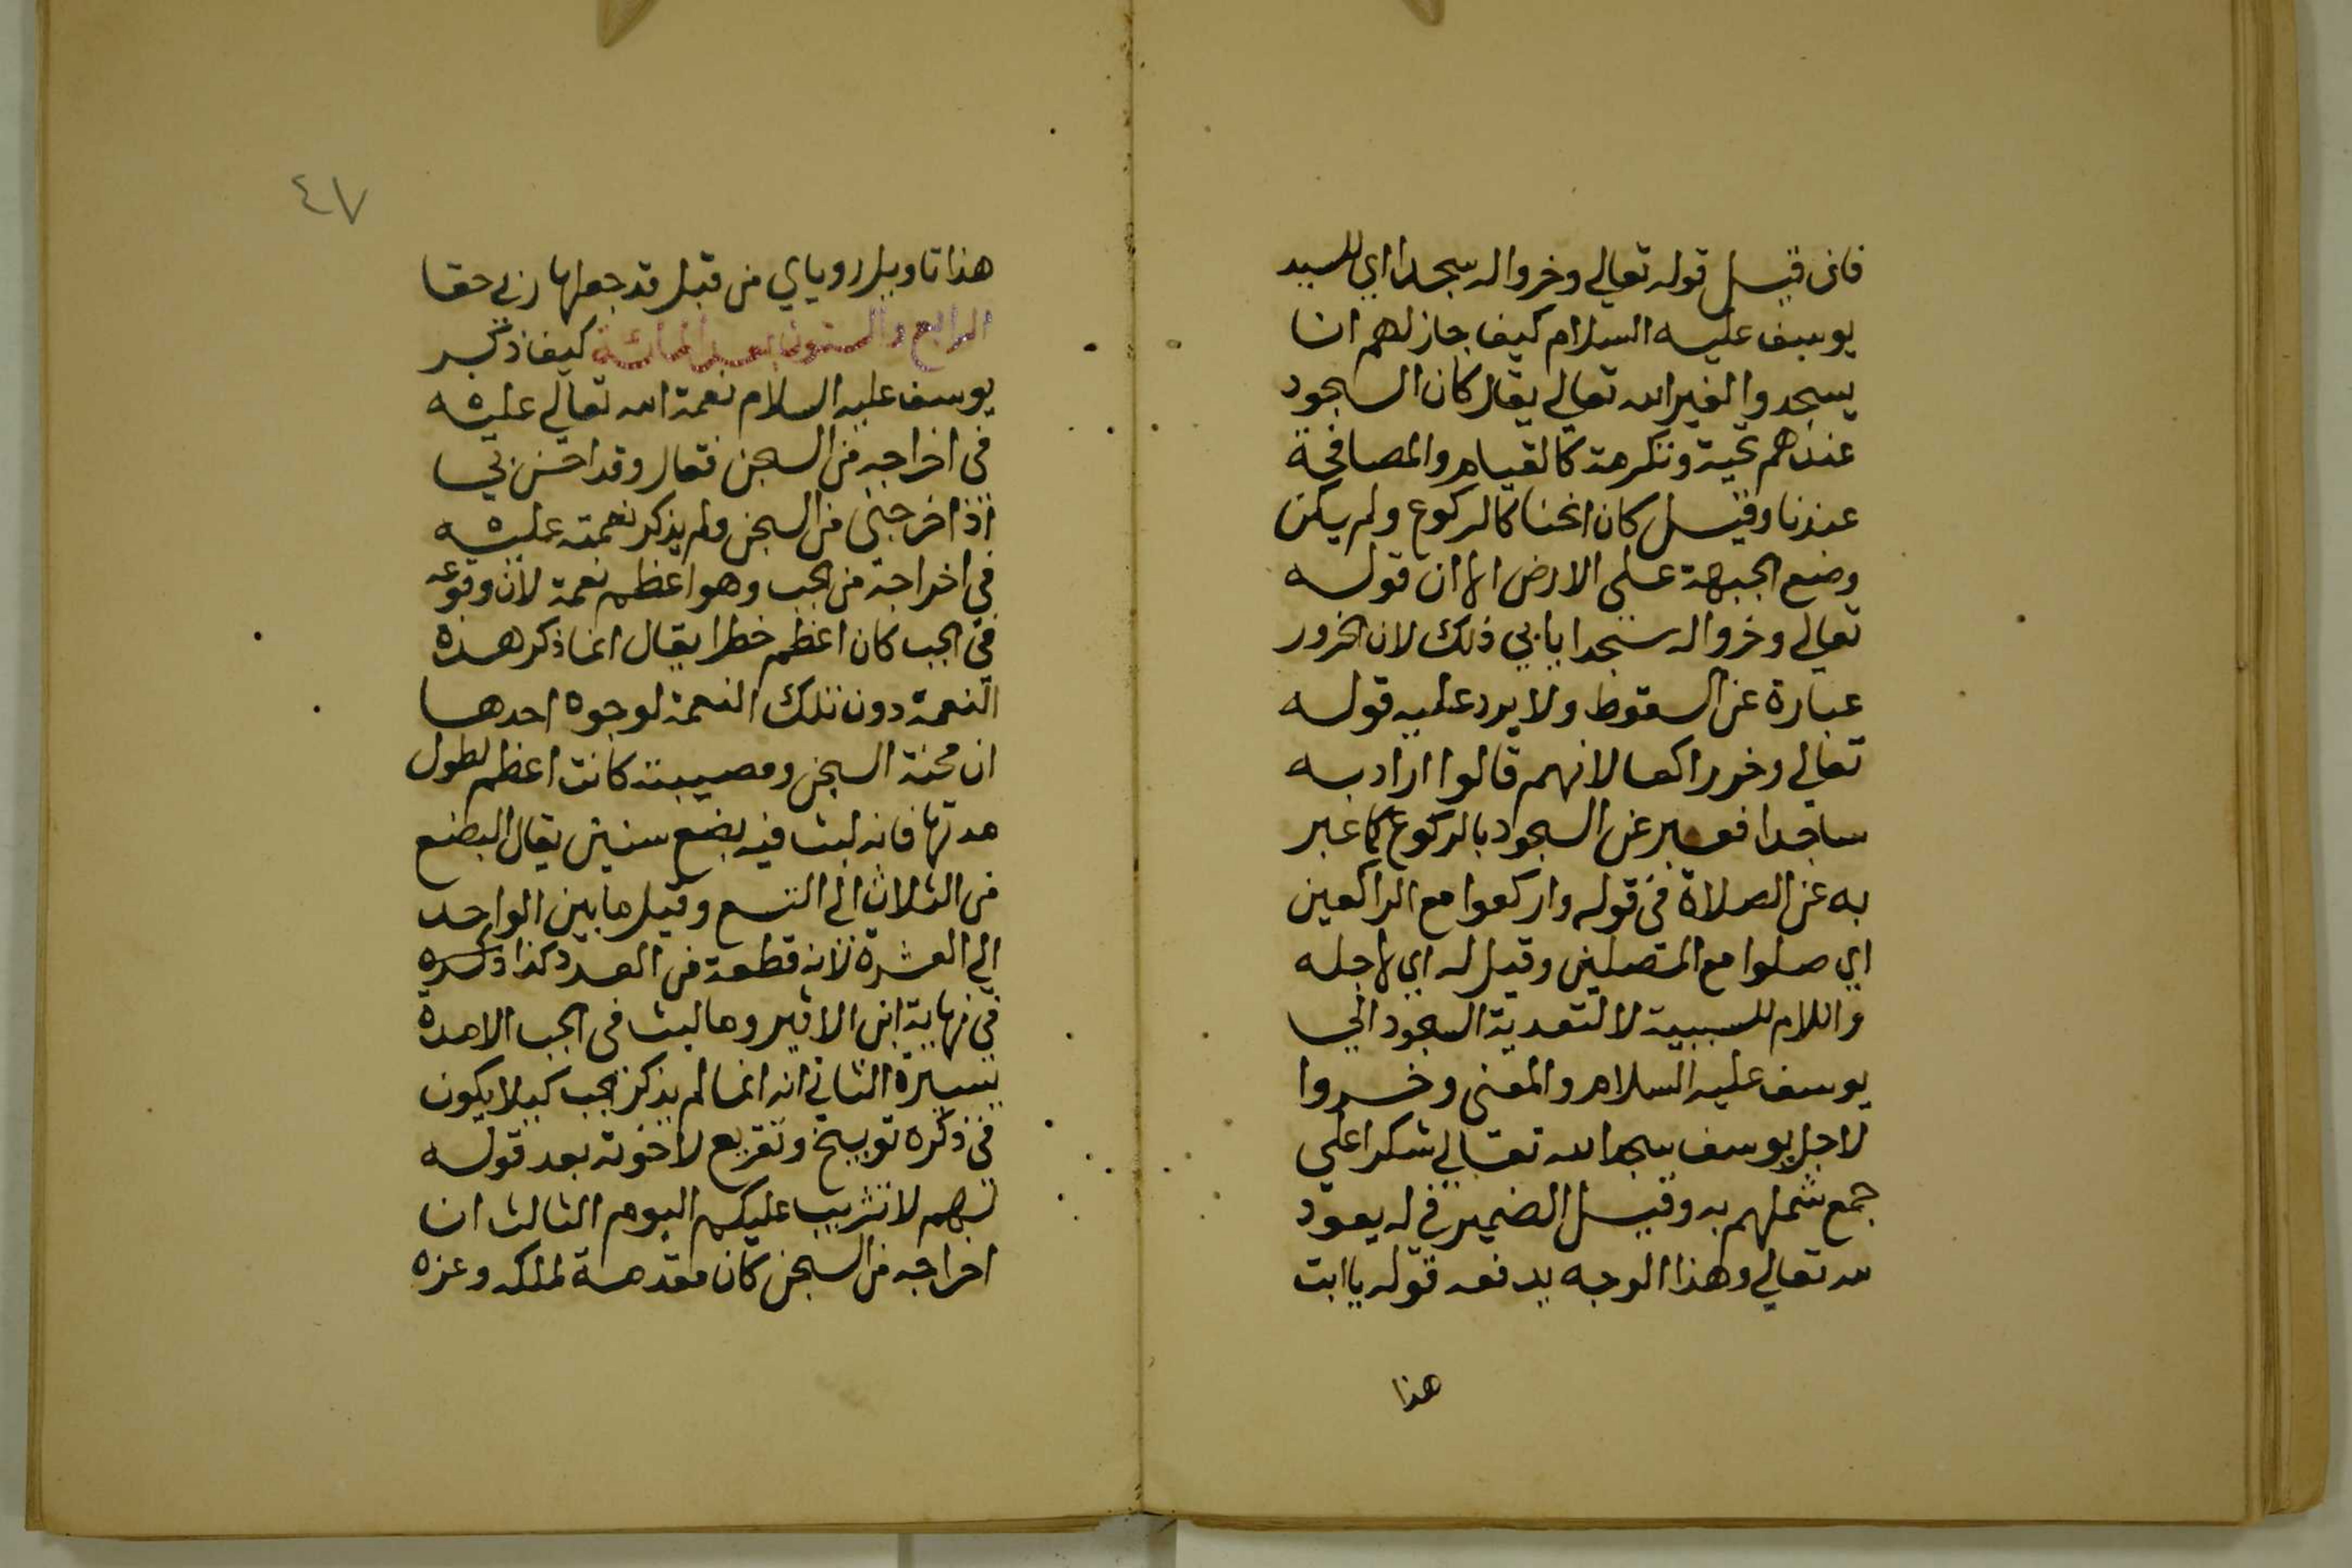 فان قيل قوله تعالى وخروا له سجدا اي للسيد
يوسف عليه السلام كيف جاز لهم ان
يسجدوا لغير الله تعالى يقال كان السجود
عندهم تحية وتكرمة كالقيام والمصافحة
عندنا وقيل كان انحنا كالركوع ولم يكن
وضع الجبهة على الارض الا ان قوله
تعالى وخروا له سجدا يابى ذلك لان الخرور
عبارة عن السقوط ولا يرد عليه قوله
تعالى وخر راكعا لانهم قالوا اراد به
ساجدا فعبر عن السجود بالركوع كما عبر
به عن الصلاة في قوله واركعوا مع الراكعين
اي صلوا مع المصلين وقيل له اي لاجله
واللام للسببية لا لتعدية السجود الى
يوسف عليه السلام والمعنى وخروا
لاجل يوسف سجدا لله تعالى شكرا على
جمع شملهم به وقيل الضمير في له يعود
لله تعالى وهذا الوجه يدفعه قوله يا ابت
هذا
٤٧
هذا تاويل روياي من قبل قد جعلها ربي حقا
الرابع والستون بعد المائة كيف ذكر
يوسف عليه السلام نعمة الله تعالى عليه
في اخراجه من السجن فقال وقد احسن بي
اذ اخرجني من السجن ولم يذكر نعمته عليه
في اخراجه من الجب وهو اعظم نعمة لان وقوعه
في الجب كان اعظم خطرا يقال انما ذكر هذه
النعمة دون تلك النعمة لوجوه احدها
ان محنة السجن ومصيبته كانت اعظم لطول
مدتها فانه لبث فيه بضع سنين يقال البضع
من الثلاث الى التسع وقيل ما بين الواحد
الى العشرة لانه قطعة من العدد كذا ذكره
في نهاية ابن الاثير وما لبث في الجب الا مدة
يسيرة الثاني انه انما لم يذكر الجب كيلا يكون
في ذكره توبيخ وتقريع لاخوته بعد قوله
لهم لا تثريب عليكم اليوم الثالث ان
اخراجه من السجن كان مقدمة لملكه وعزه